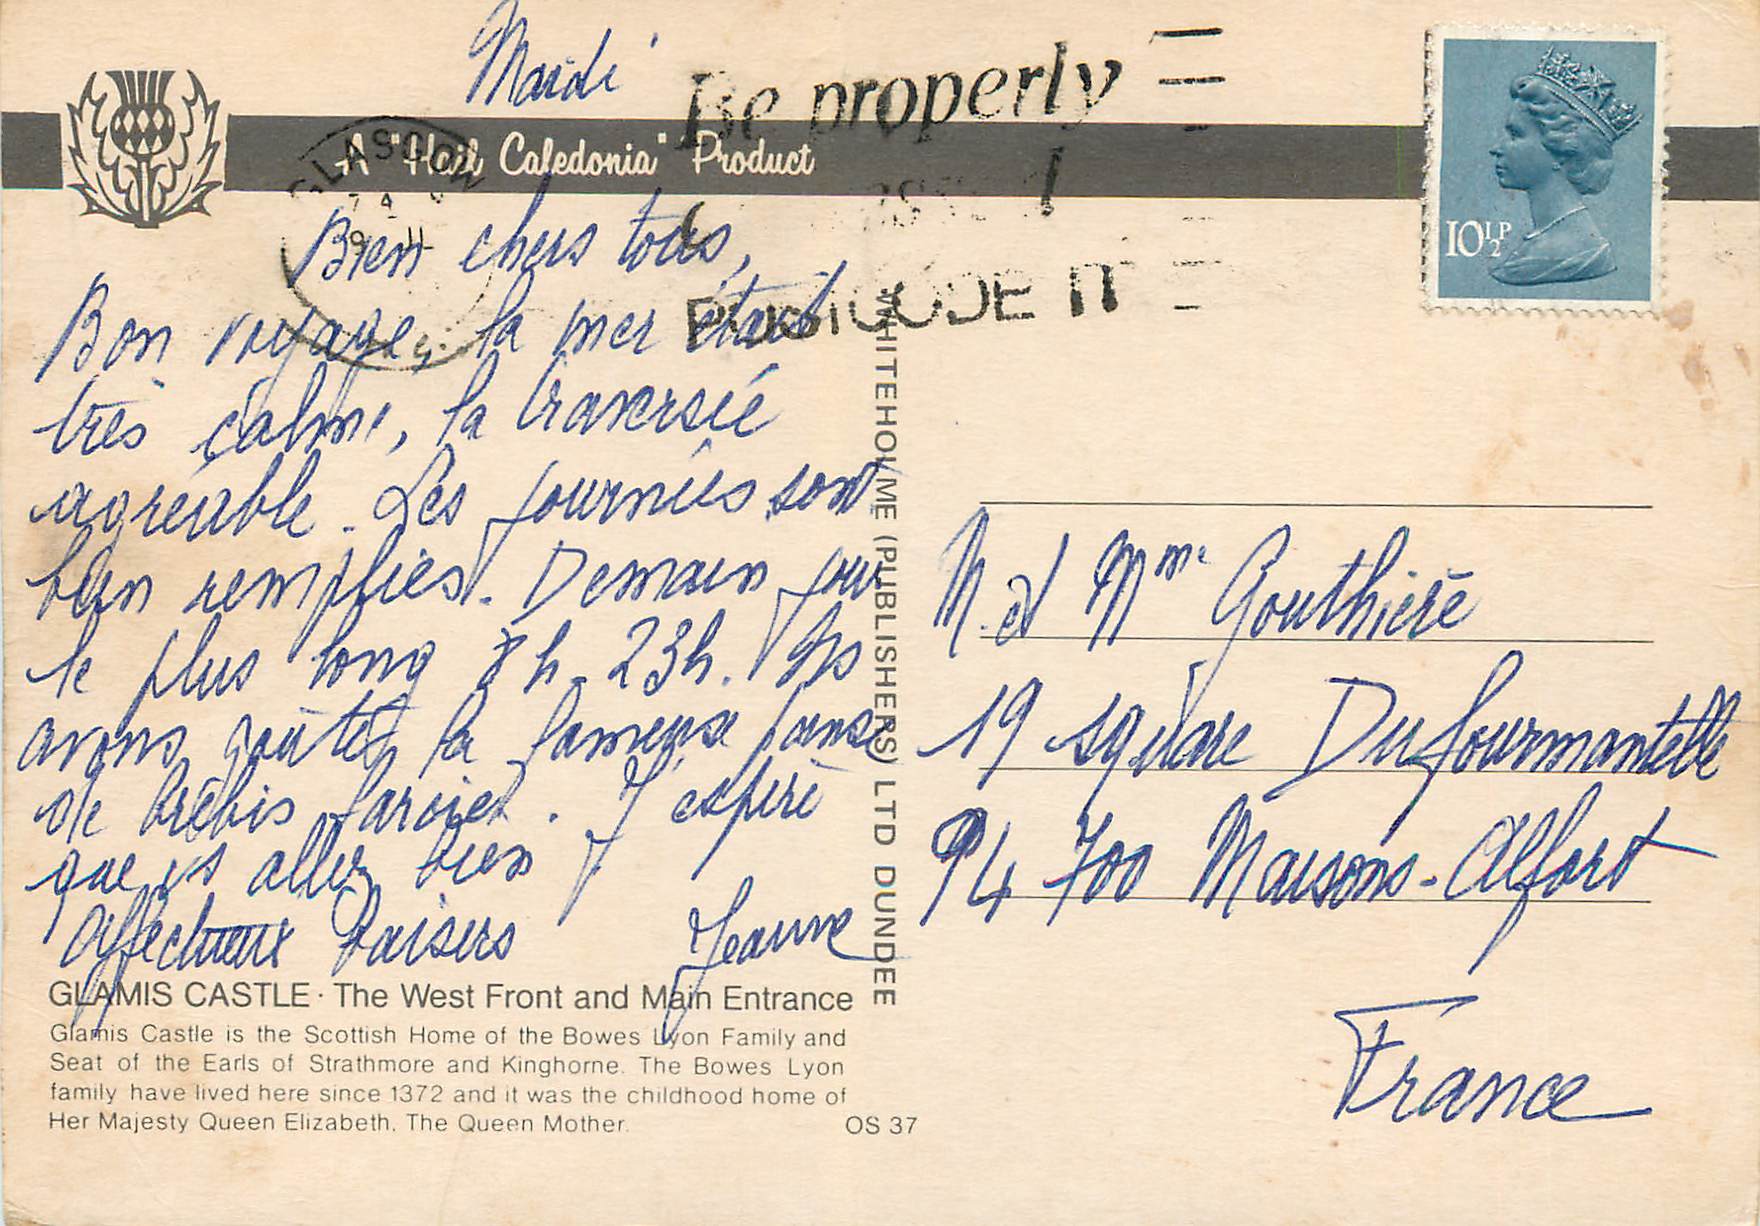 Mardi
A "Hail Caledonia" Product
GLASGOW
Be properly
POSTCODE IT
10½P
Bien chers tous,
Bon voyage, la mer était
très calme, la traversée
agréable. Les journées sont
bien remplies. Demain jour
le plus long 8h 23h. Ns
avons goûté la fameuse panse
de brebis farcie. J'espère
que vs allez bien
Affectueux baisers Jeanne
WHITEHOLME (PUBLISHERS) LTD DUNDEE
M. et Mme Gouthière
19 square Dufourmantelle
94 700 Maisons-Alfort
France
GLAMIS CASTLE · The West Front and Main Entrance
Glamis Castle is the Scottish Home of the Bowes Lyon Family and
Seat of the Earls of Strathmore and Kinghorne. The Bowes Lyon
family have lived here since 1372 and it was the childhood home of
Her Majesty Queen Elizabeth, The Queen Mother.
OS 37